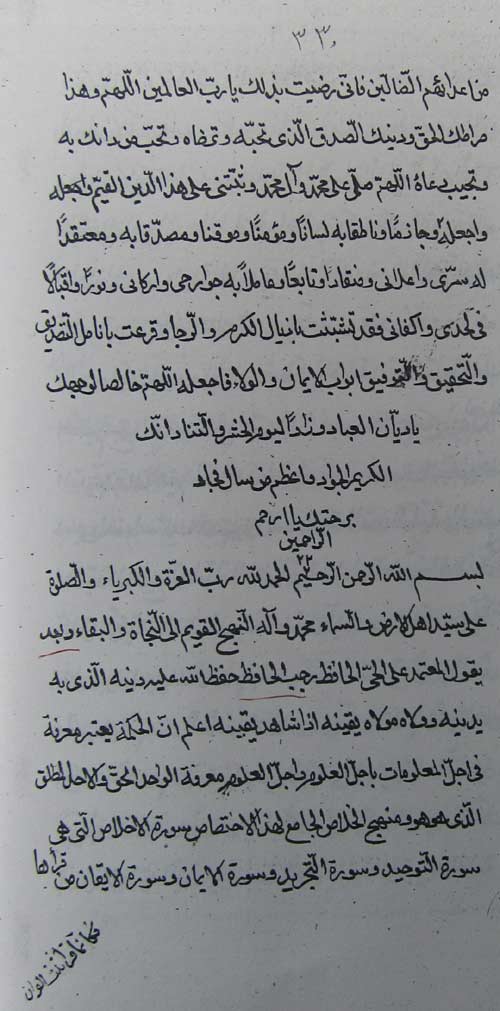 ٣٣٠
من اعدائهم الضالين فانى رضيت بذلك يا ربّ العالمين اللهم وهذا
صراطك الحق ودينك الصدق الّذى تحبّه وترضاه وتحبّ من دانك به
وتجيب دعاه اللهم صلّى على محمّد وآل محمّد وثبّتنى على هذا الدين القيّم واجعله
واجعلنى جازمًا وناطقا به لسانًا ومؤمنًا وموقنا ومصدّقا به ومعتقدًا
له سرّى واعلانى ومنقادا وتابعًا وعاملاً به جوارحى واركانى ونورًا واقبالًا
فى لحدى واكفانى فقد تشبّثت باذيال الكرم والرجا وقرعت بانامل التصديق
والتحقيق والتوفيق ابواب الايمان والولاء فاجعله اللهمّ خالصا لوجهك
يا ديّان العباد وزادًا ليوم الحشر والتناد انك
الكريم الجواد واعظم من سال فجاد
برحمتك يا ارحم
الرّاحمين
بسم الله الرّحمن الرّحيم الحمد لله ربّ العزّة والكبرياء والصلوة
على سيّد اهل الارض والسماء محمّد وآله النهج القويم الى النجاة والبقاء وبعد
يقول المعتمد على الحىّ الحافظ رجب الحافظ حفظ الله عليه دينه الّذى به
يدينه وولاه مولاه يقينه اذا شاهد يقينه اعلم انّ الحكمة يعتبر معرفة
فى اجلّ المعلومات باجلّ العلوم واجلّ العلوم معرفة الواحد الحقّ والاحد المطلق
الّذى هو هو ومنهج الخلاص الجامع لهذا الاختصاص سورة الاخلاص الّتى هى
سورة التوحيد وسورة التجريد وسورة الايمان وسورة الايقان من قرأها
فكانما قرأ ثلث القرآن